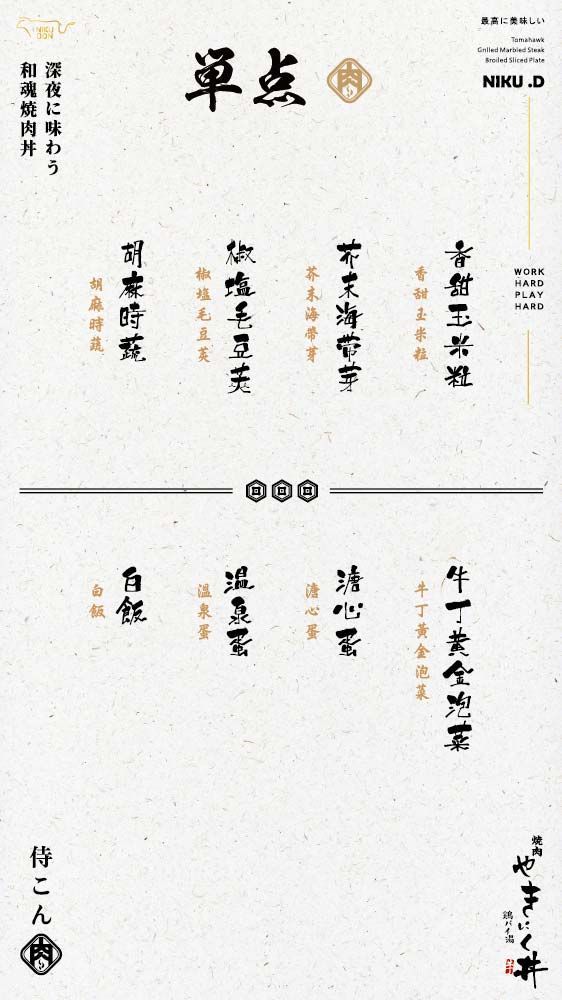 NIKU
DON
深夜に味わう
和魂焼肉丼
単点
肉
最高に美味しい
Tomahawk
Grilled Marbled Steak
Broiled Sliced Plate
NIKU .D
WORK
HARD
PLAY
HARD
香甜玉米粒
香甜玉米粒
芥末海帶芽
芥末海帶芽
椒塩毛豆莢
椒塩毛豆莢
胡麻時蔬
胡麻時蔬
牛丁黃金泡菜
牛丁黃金泡菜
溏心蛋
溏心蛋
温泉蛋
溫泉蛋
白飯
白飯
侍こん
肉
焼肉
やきにく丼
鶏パイ湯